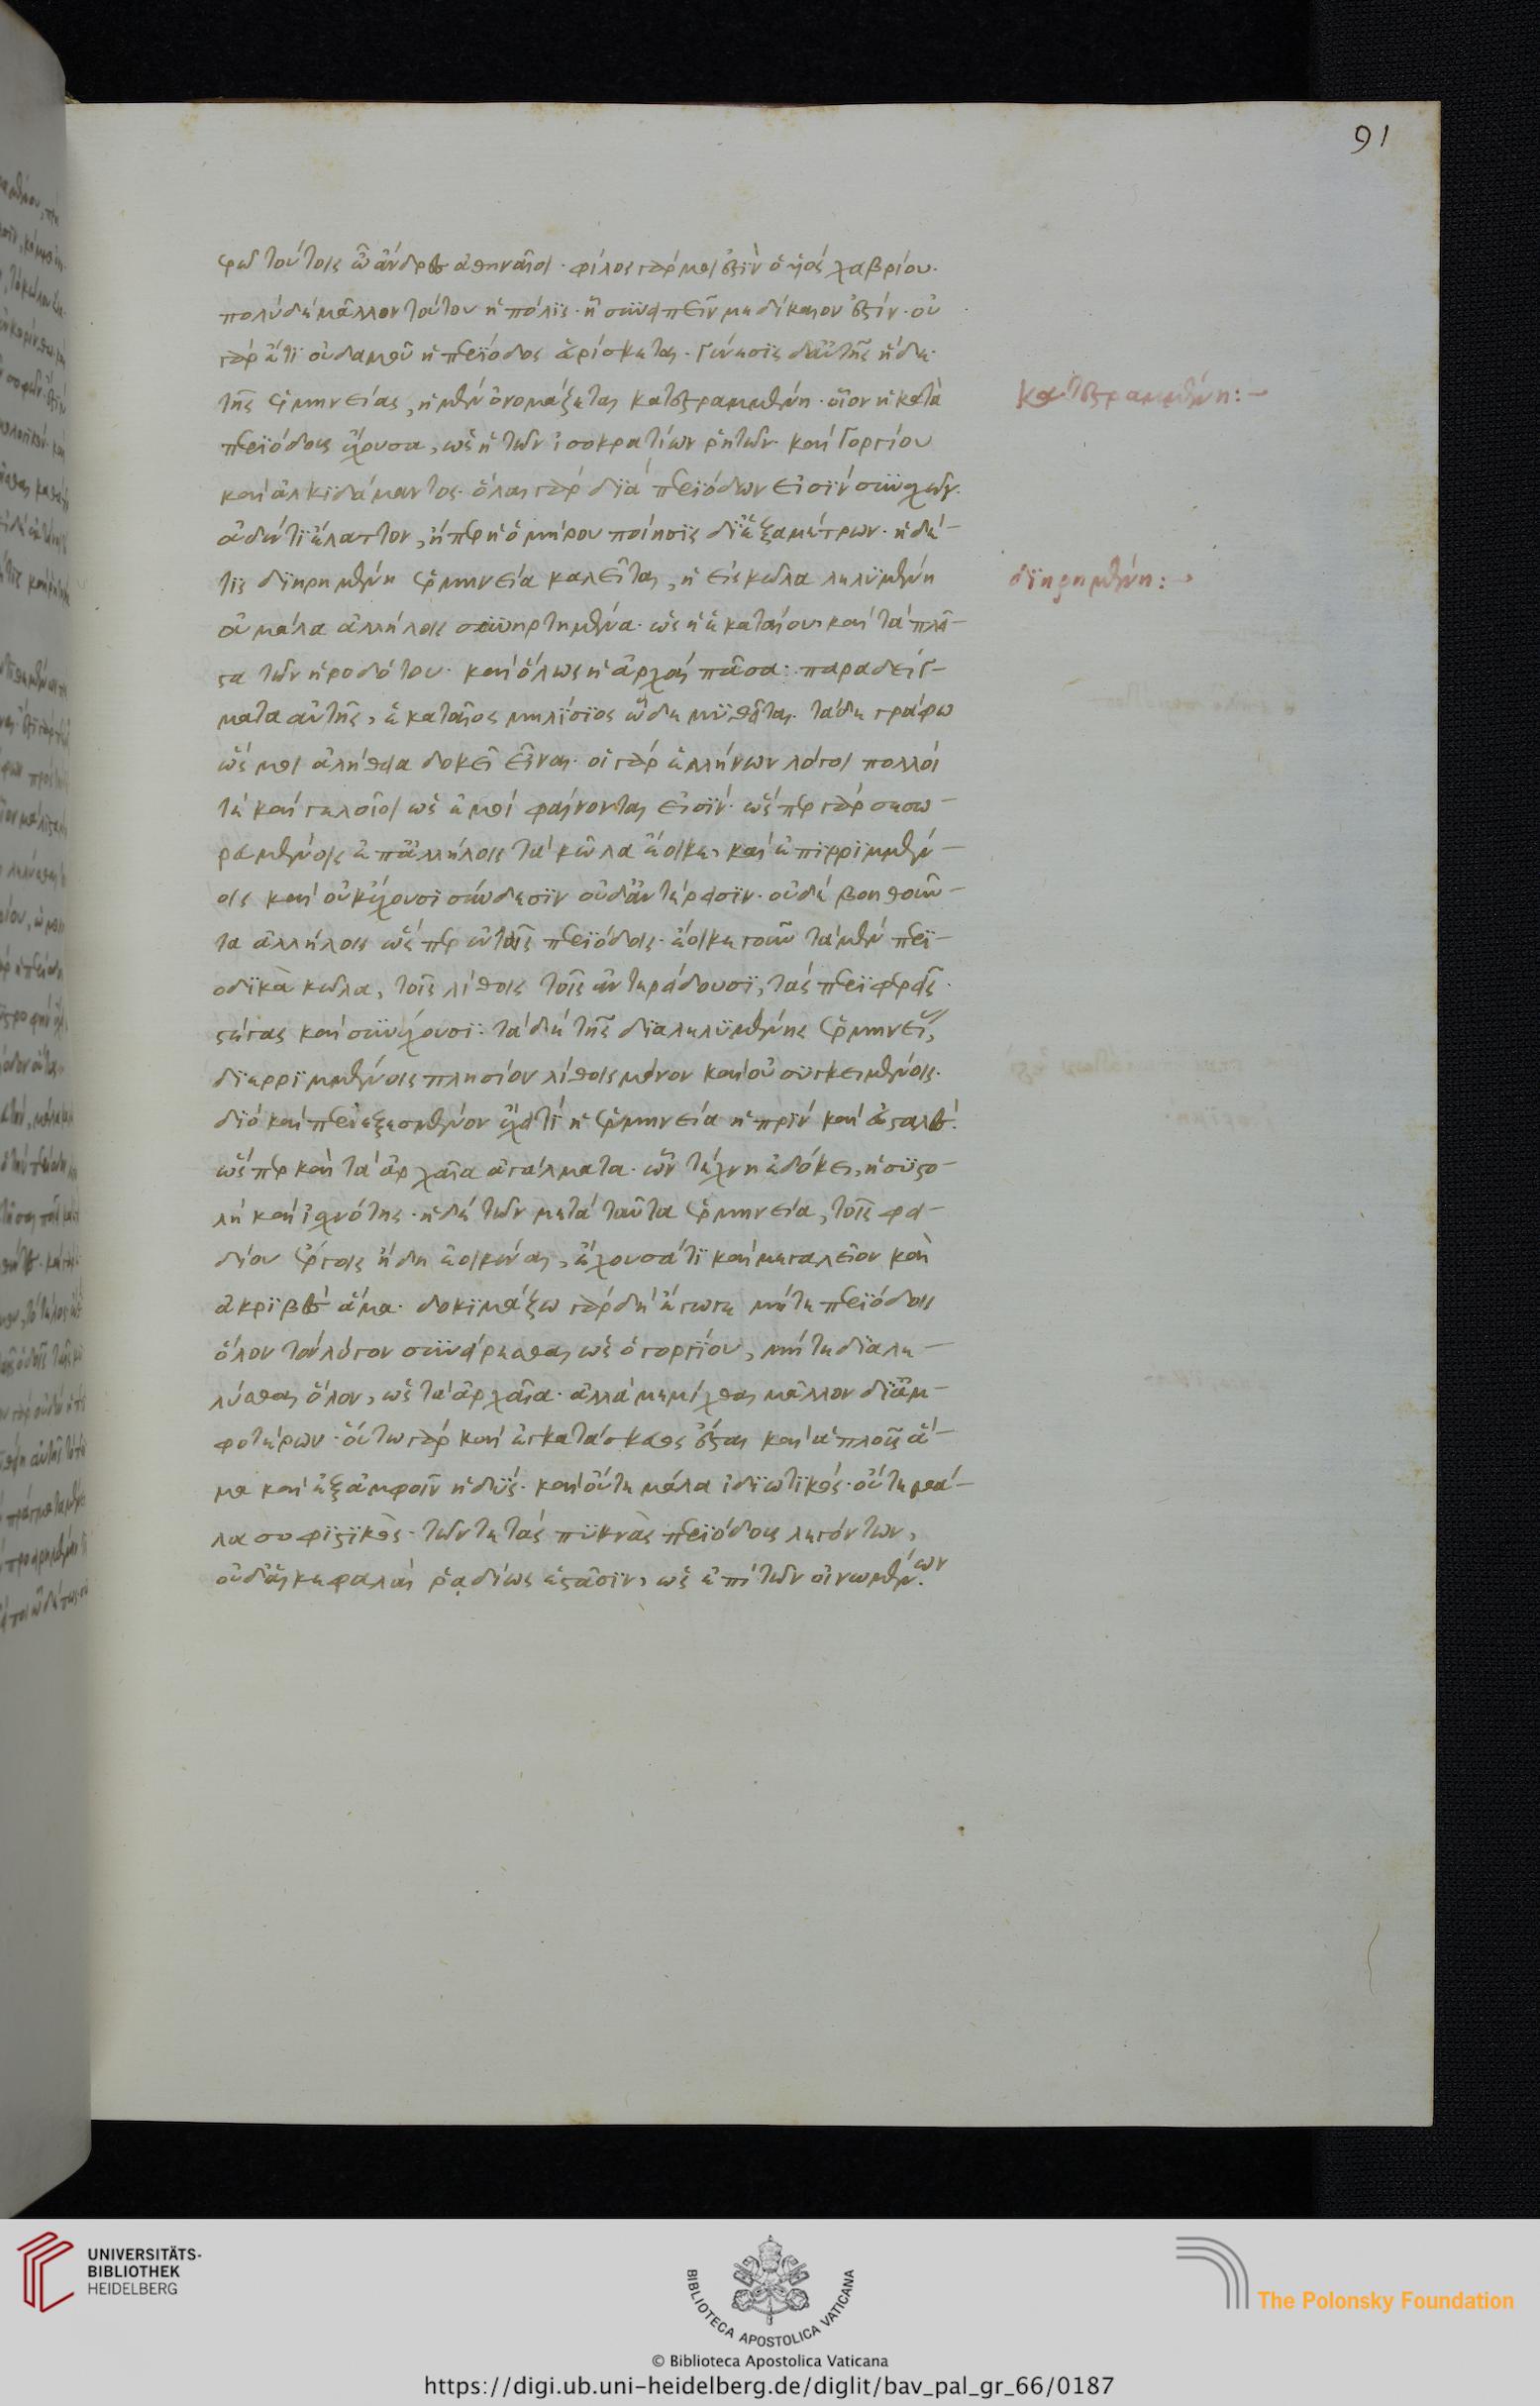 ρῶ τούτοις ὦ ἄνδρες ἀθηναῖοι· φίλος γάρ μοι ἐστὶν ὁ ὑὸς χαβρίου·
πολὺ δὲ μᾶλλον τούτου ἡ πόλις· ᾗ συνειπεῖν με δίκαιον ἐστίν· οὐ
γὰρ ἔτι οὐδαμοῦ ἡ περίοδος εὑρίσκεται. Γένεσις δ' αὐτῆς ἥδε·
τῆς ἑρμηνείας, ἡ μὲν ὀνομάζεται κατεστραμμένη· οἷον ἡ κατὰ
περιόδους ἔχουσα, ὡς ἡ τῶν ἰσοκρατείων ῥητῶν· καὶ Γοργίου
καὶ ἀλκιδάμαντος· ὅλαι γὰρ διὰ περιόδων εἰσὶν συνεχῶν·
οὐδέν τι ἔλαττον, ἤπερ ἡ ὁμήρου ποίησις δι' ἑξαμέτρων· ἡ δέ-
τις διηρημένη ἑρμηνεία καλεῖται, ἡ εἰς κῶλα λελυμένη
οὐ μάλα ἀλλήλοις συνηρτημένα· ὡς ἡ ἑκαταίου· καὶ τὰ πλεῖ-
στα τῶν ἡροδότου· καὶ ὅλως ἡ ἀρχαία πᾶσα· παραδείγ-
ματα αὐτῆς, ἑκαταῖος μιλήσιος ὧδε μυθεῖται· τάδε γράφω
ὥς μοι ἀληθέα δοκεῖ εἶναι· οἱ γὰρ ἑλλήνων λόγοι πολλοί
τε καὶ γελοῖοι ὡς ἐμοὶ φαίνονται εἰσίν· ὥσπερ γὰρ σεσω-
ρευμένοις ἐπ' ἀλλήλοις τὰ κῶλα ἔοικε, καὶ ἐπιρριμμέν-
οις καὶ οὐκ ἔχουσι σύνδεσιν οὐδ' ἀντέρεισιν· οὐδὲ βοηθοῦν-
τα ἀλλήλοις ὥσπερ ἐν ταῖς περιόδοις· ἔοικε γοῦν τὰ μὲν περι-
οδικὰ κῶλα, τοῖς λίθοις τοῖς ἀντερείδουσι, τὰς περιφερεῖς
στέγας καὶ συνέχουσι· τὰ δὲ τῆς διαλελυμένης ἑρμηνεί,
διερριμμένοις πλησίον λίθοις μόνον καὶ οὐ συγκειμένοις·
διὸ καὶ περιεξεσμένον ἔχει τι ἡ ἑρμηνεία ἡ πρὶν καὶ εὐσταλές·
ὥσπερ καὶ τὰ ἀρχαῖα ἀγάλματα· ὧν τέχνη ἐδόκει, ἡ συστο-
λὴ καὶ ἰσχνότης· ἡ δὲ τῶν μετὰ ταῦτα ἑρμηνεία, τοῖς φει-
δίου ἔργοις ἤδη ἔοικεν, ἔχουσά τι καὶ μεγαλεῖον καὶ
ἀκριβὲς ἅμα· δοκιμάζω γὰρ δὴ ἔγωγε μήτε περιόδοις
ὅλον τὸν λόγον συνείρεσθαι ὡς ὁ γοργίου, μήτε διαλε-
λύσθαι ὅλον, ὡς τὰ ἀρχαῖα· ἀλλὰ μεμίχθαι μᾶλλον δι' ἀμ-
φοτέρων· οὕτω γὰρ καὶ ἐγκατάσκευος ἔσται καὶ ἁπλοῦς ἅ-
μα καὶ ἐξ ἀμφοῖν ἡδύς· καὶ οὔτε μάλα ἰδιωτικός· οὔτε μά-
λα σοφιστικός· τῶν τε τὰς πυκνὰς περιόδους λεγόντων,
οὐδ' αἱ κεφαλαὶ ῥᾳδίως ἑστᾶσιν, ὡς ἐπὶ τῶν οἰνωμένων·
κατεστραμμένη:-
διηρημένη:-
91
UNIVERSITÄTS-
BIBLIOTHEK
HEIDELBERG
BIBLIOTECA APOSTOLICA VATICANA
© Biblioteca Apostolica Vaticana
The Polonsky Foundation
https://digi.ub.uni-heidelberg.de/diglit/bav_pal_gr_66/0187